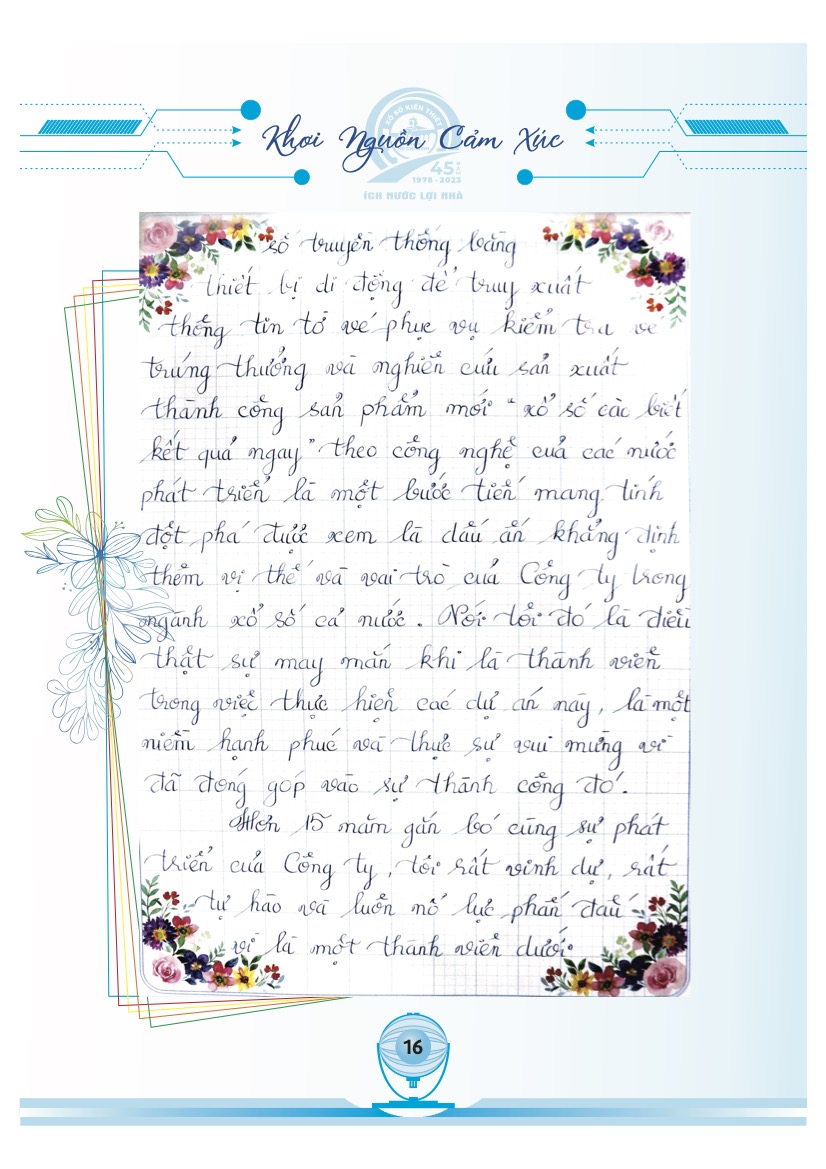 XỔ SỐ KIẾN THIẾT
Khơi Nguồn Cảm Xúc
45 NĂM
1978 - 2023
ÍCH NƯỚC LỢI NHÀ
số truyền thống bằng
thiết bị di động để truy xuất
thông tin tờ vé phục vụ kiểm tra vé
trúng thưởng và nghiên cứu sản xuất
thành công sản phẩm mới "xổ số cào biết
kết quả ngay" theo công nghệ của các nước
phát triển là một bước tiến mang tính
đột phá được xem là dấu ấn khẳng định
thêm vị thế và vai trò của Công ty trong
ngành xổ số cả nước. Nói tôi đó là điều
thật sự may mắn khi là thành viên
trong việc thực hiện các dự án này, là một
niềm hạnh phúc và thực sự vui mừng vì
đã đóng góp vào sự thành công đó.
Hơn 15 năm gắn bó cùng sự phát
triển của Công ty, tôi rất vinh dự, rất
tự hào và luôn nỗ lực phấn đấu
vì là một thành viên dưới
16